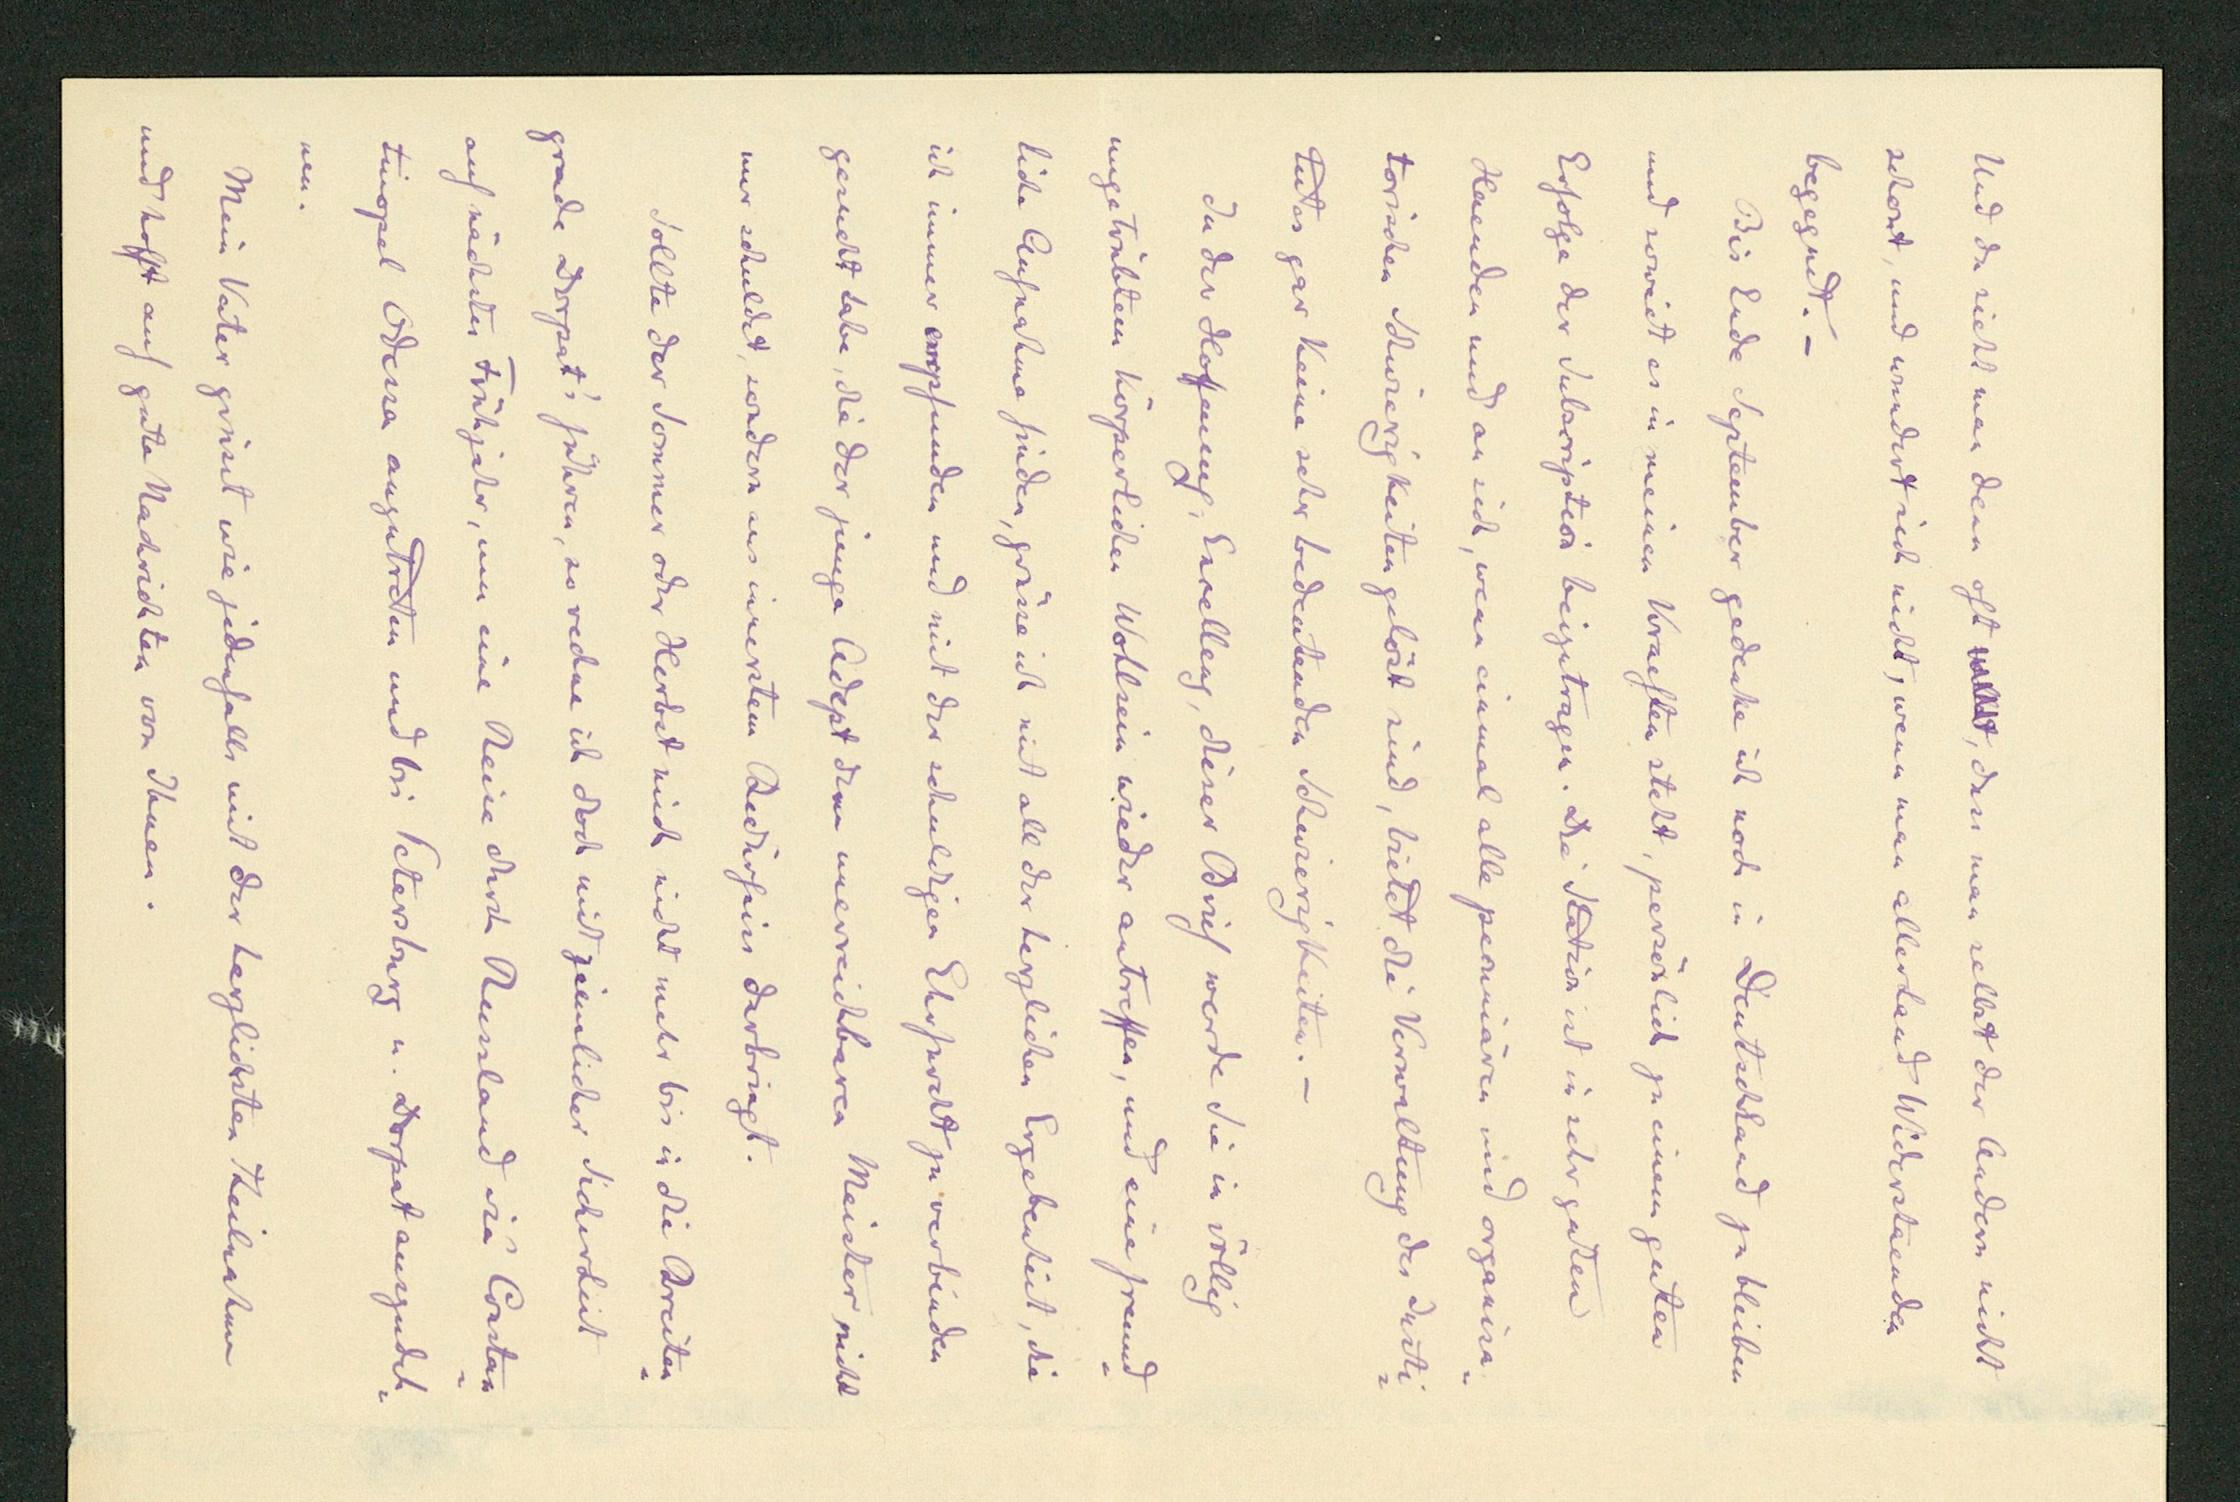 Und da sieht man denn oft, dass man selbst der Andern nicht
schont, und wundert sich nicht, wenn man allerhand Widerstaenden
begegnet. –
Bis Ende September gedenke ich noch in Deutschland zu bleiben
und soweit es in meinen Kraeften steht, persönlich zu einem guten
Erfolge der Subscription beizutragen. Die Station ist in sehr guten
Haenden und an sich, wenn einmal alle pecuniären und organisa=
torischen Schwierigkeiten gelöst sind, bietet die Verwaltung des Insti=
tutes gar keine sehr bedeutenden Schwierigkeiten. –
In der Hoffnung, Excellenz, dieser Brief werde Sie in völlig
ungetrübtem körperlichen Wohlsein wieder antreffen, und eine freund=
liche Aufnahme finden, grüsse ich mit all der herzlichen Ergebenheit, die
ich immer empfunden und mit der schuldigen Ehrfurcht zu verbinden
gesucht habe, die der junge Adept dem unerreichbaren Meister nicht
nur schuldet, sondern aus innerstem Bedürfniss darbringt.
Sollte der Sommer oder Herbst mich nicht mehr bis in die Breiten=
grade Dorpat's führen, so rechne ich doch mit ziemlicher Sicherheit
auf nächstes Frühjahr, um eine Reise durch Russland via Constan=
tinopel Odessa anzutreten und bis Petersburg u. Dorpat auszudeh=
nen.
Mein Vater grüsst wie jedenfalls mit der herzlichsten Theilnahme
und hofft auf gute Nachrichten von Ihnen.